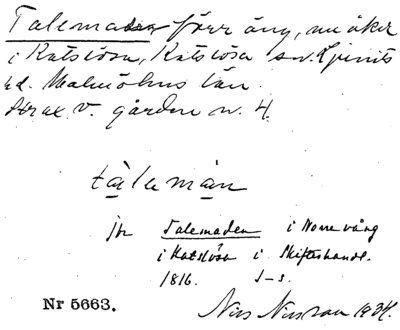 Talemaden förr äng, nu åker
i Katslösa, Katslösa sn. Ljunits
hd. Malmöhus län.
Strax v. gården nr. 4.
tàlemàn
jr Talemaden i Norrevång
i Katslösa i Skifteshandl.
1816. J-s.
Nr 5663.
Nils Nilsson 1934.